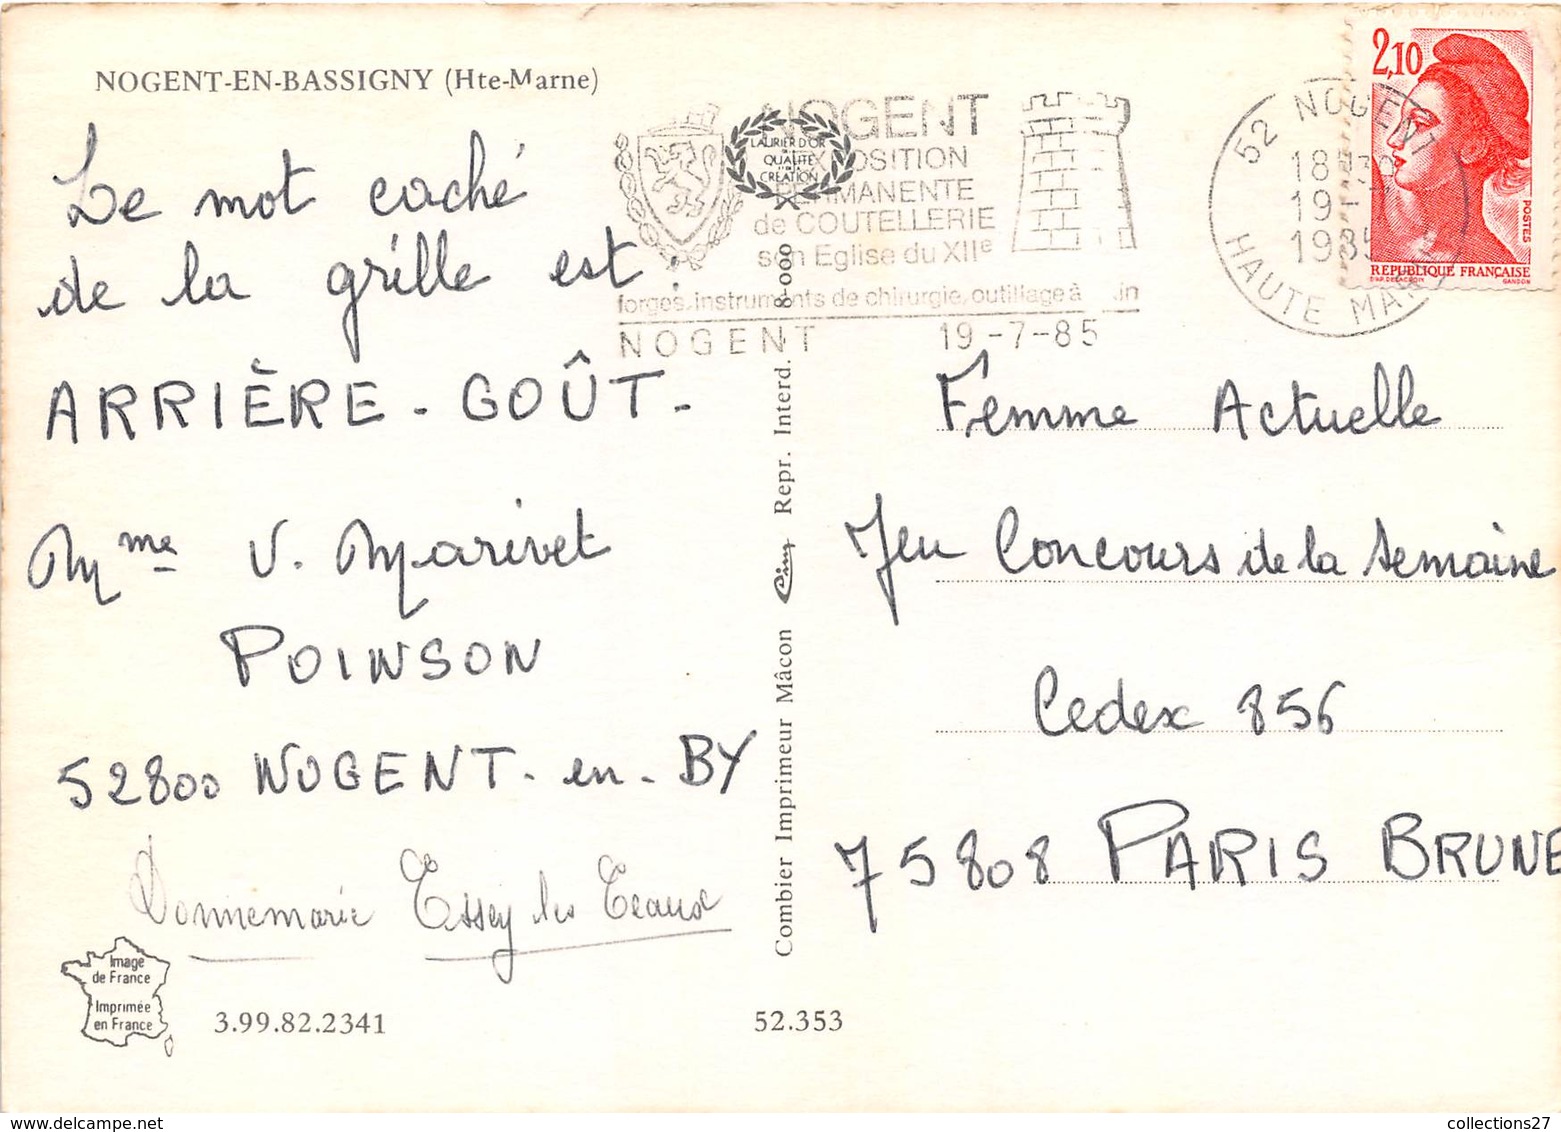 NOGENT-EN-BASSIGNY (Hte-Marne)
Le mot caché
de la grille est :
ARRIÈRE - GOÛT -
Mme V. Marivet
POINSON
52800 NOGENT - en - BY
Donnemarie Essey les Eaux
Image
de France
Imprimée
en France
3.99.82.2341
52.353
Combier Imprimeur Mâcon Cim Repr. Interd. 8-000
LAURIER D'OR
QUALITÉ
CRÉATION
NOGENT
EXPOSITION
PERMANENTE
de COUTELLERIE
son Eglise du XIIe
forges, instruments de chirurgie, outillage à
NOGENT 19-7-85
52 NOGENT
18H30
19-7
1985
HAUTE MARNE
2,10
POSTES
REPUBLIQUE FRANÇAISE
D'AP. DELACROIX GANDON
Femme Actuelle
Jeu Concours de la semaine
Cedex 856
75808 PARIS BRUNE
collections27